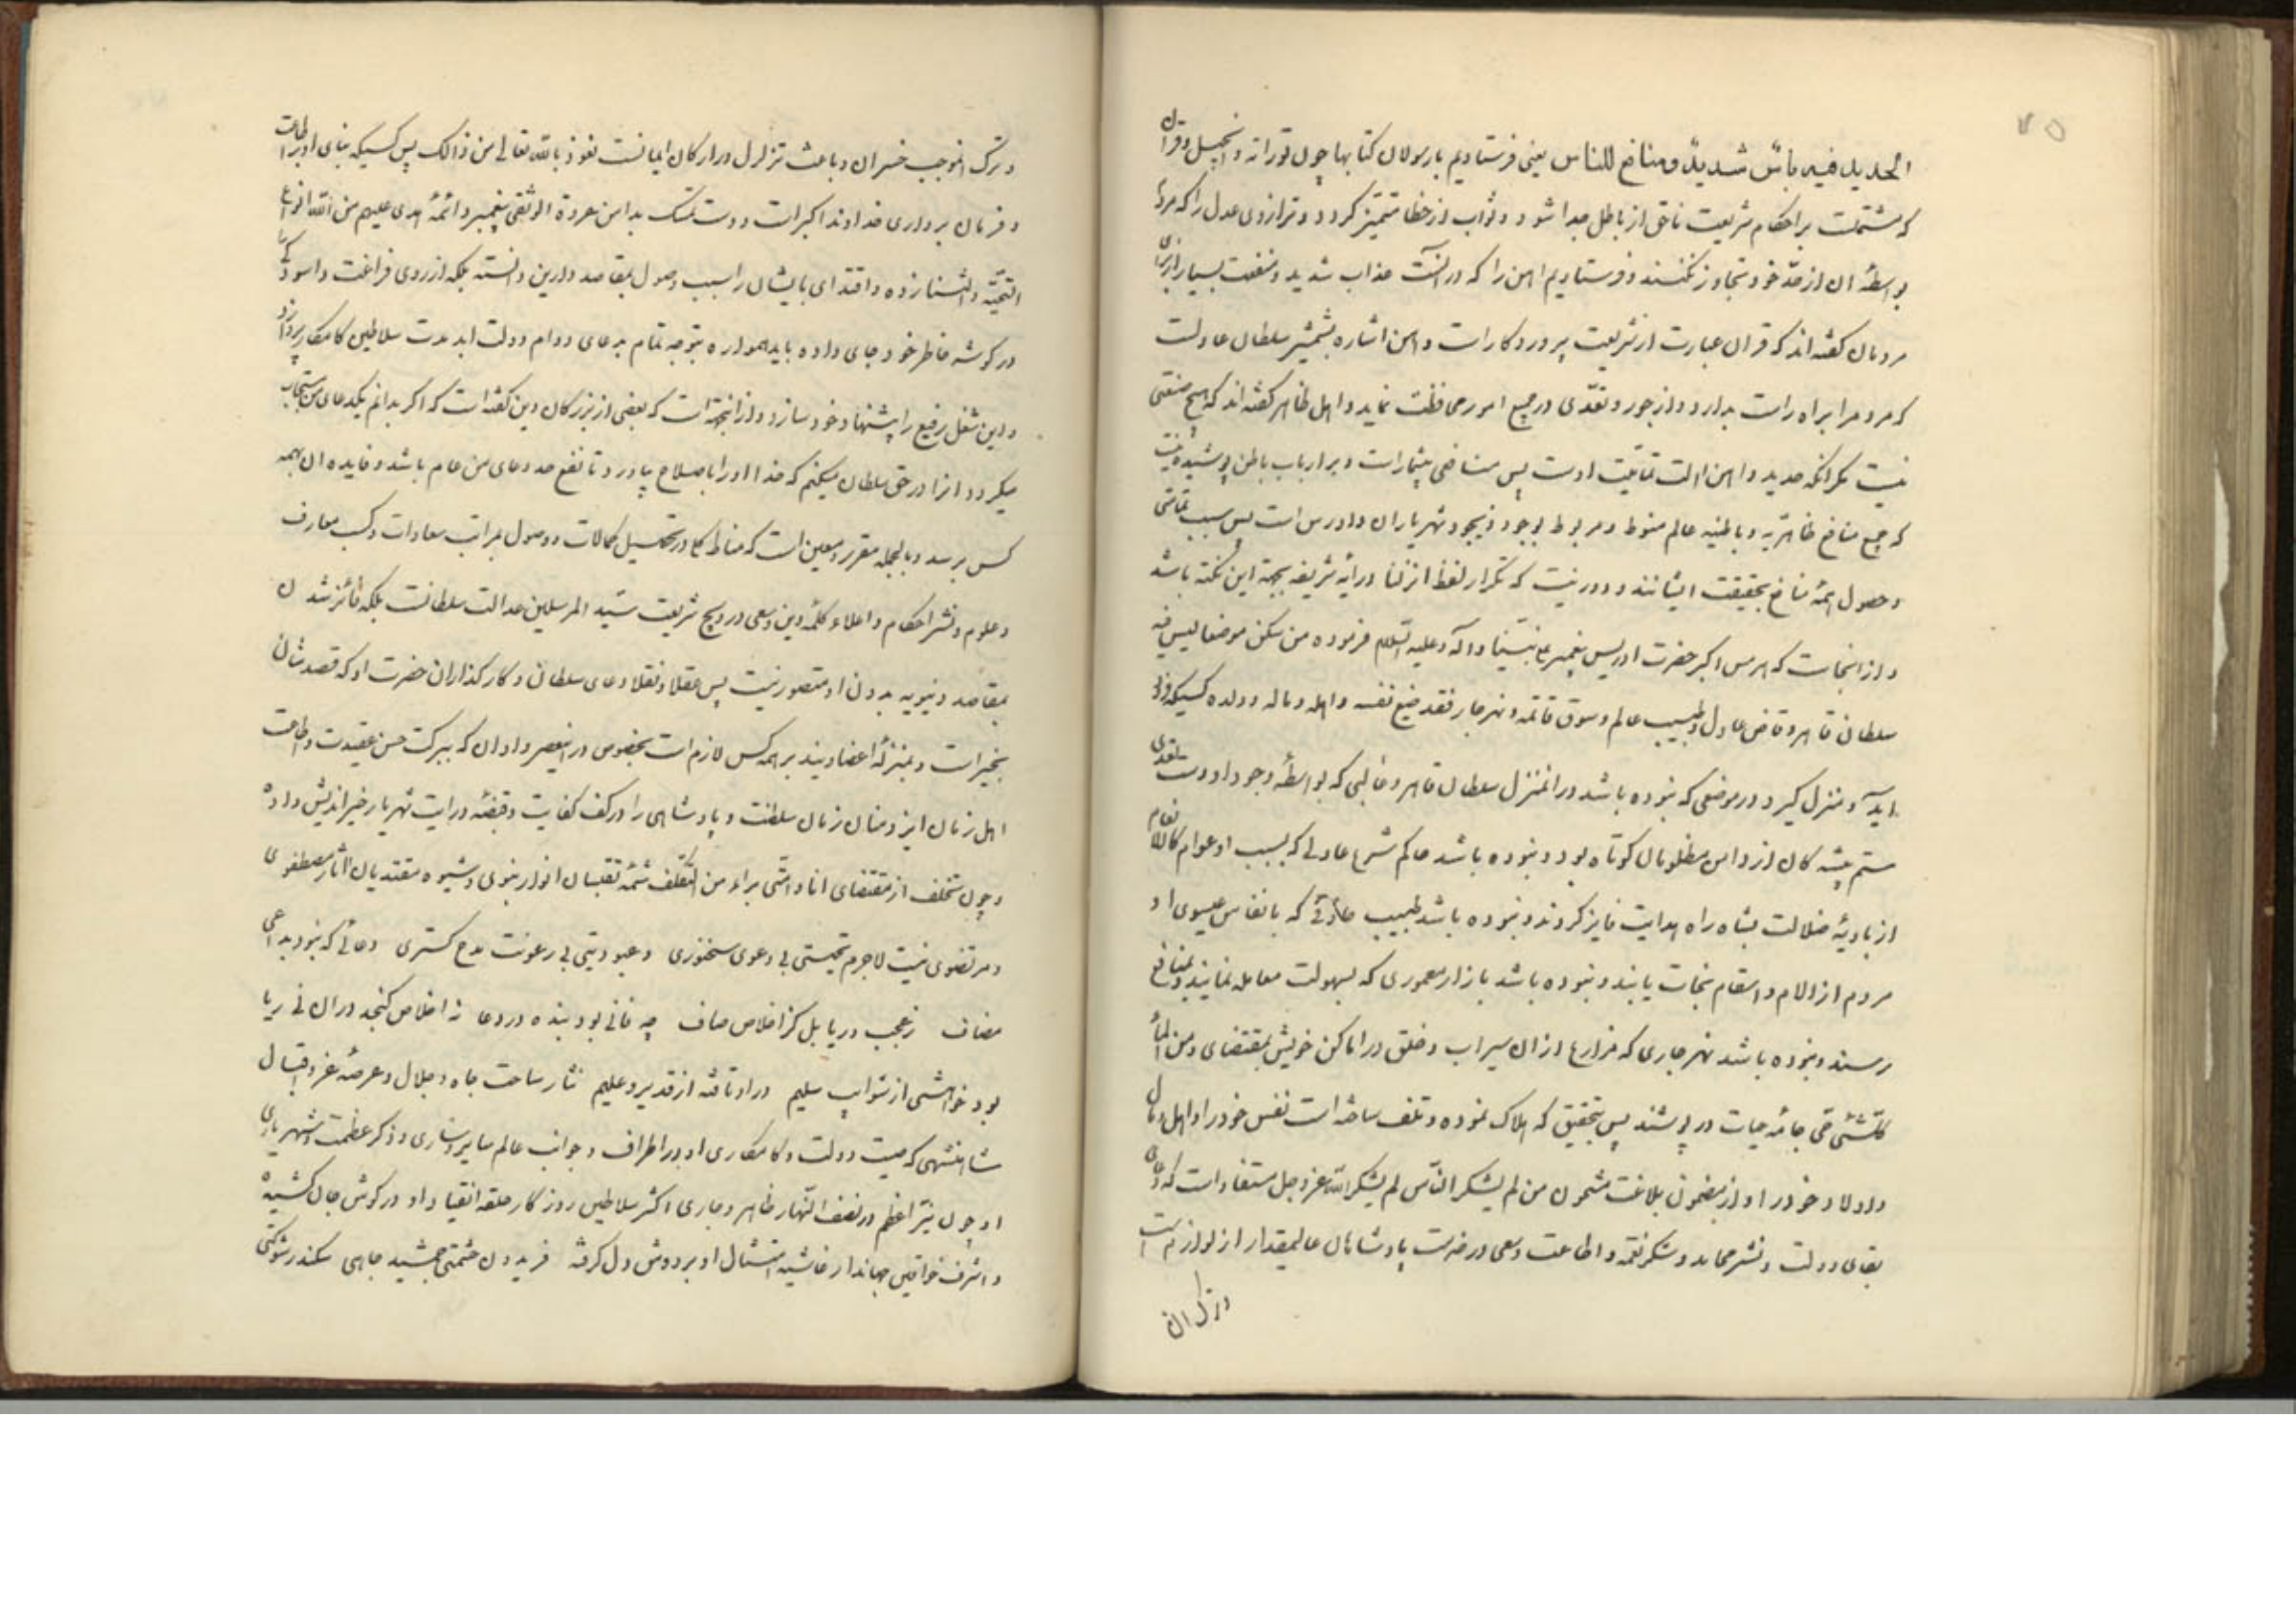 الحدید فیه باس شدید و منافع للناس یعنی فرستادیم با رسولان کتابها چون توراة و انجیل و قران
که مشتملست بر احکام شریعت تا حق از باطل جدا شود و ثواب از خطا متمیز کردد و ترازوی عدل را که مردم
بواسطهٔ ان از حدّ خود تجاوز نکنند و فرستادیم اهن را که در انست عذاب شدید و منفعت بسیار از برای
مردمان کفته اند که قران عبارت از شریعت پروردکار است و اهن اشاره بشمشیر سلطان عادلست
که مردم را براه راست بدارد و از جور و تعدّی در جمیع امور محافظت نماید و اهل ظاهر کفته اند که هیچ صنعتی
نیست مکر انکه حدید و اهن الت تمامیّت اوست پس منافعی بیشمار است و بر ارباب باطن پوشیده نیست
که جمیع منافع ظاهریّه و باطنیه عالم منوط و مربوط بوجود ذیجود شهریاران دادرس است پس سبب تمامی
و حصول همهٔ منافع بحقیقت ایشانند و دور نیست که تکرار لفظ انزلنا در ایهٔ شریفه بجهة این نکته باشد
و از اینجاست که هرمس اکبر حضرت ادریس پیغمبر علی نبیّنا و اله و علیه السّلام فرموده من سکن موضعا لیس فیه
سلطان قاهر و قاض عادل و طبیب عالم و سوق قائمه و نهر جار فقد ضیع نفسه و اهله و ماله و ولده کسیکه فرود
اید و منزل کیرد در موضعی که نبوده باشد در انمنزل سلطان قاهر و غالبی که بواسطهٔ وجود او دست تعدی
ستم پیشه کان از دامن مظلومان کوتاه بود و نبوده باشد حاکم شرع عادلی که بسبب او عوام کالانعام
از بادیهٔ ضلالت بشاه راه هدایت فایز کردند و نبوده باشد طبیب حاذقی که بانفاس عیسوی او
مردم از الام و اسقام نجات یابند و نبوده باشد بازار معموری که بسهولت معامله نمایند و بمنافع
رسند و نبوده باشد نهر جاری که مزارع از ان سیراب و خلق در اماکن خویش بمقتضای و من المآء
کلّ شئی حی جامهٔ حیات در پوشند پس بتحقیق که هلاک نموده و تلف ساخته است نفس خود را و اهل و مال
و اولاد خود را و از مضمون بلاغت مشحون من لم یشکر النّاس لم یشکر الله عزّ و جل مستفاد است که دعای
بقای دولت و نشر محامد و شکر نعمه و اطاعت و سعی در خدمت پادشاهان عالیمقدار از لوازم است
و ترک ان
و ترک انموجب خسران و باعث تزلزل در ارکان ایمانست نعوذ بالله تعالی من ذالک پس کسیکه بنای او بر اطاعت
و فرمان برداری خداوند اکبر است و دست تمسک بدامن عروة الوثقی پیغمبر و ائمهٔ هدی علیهم من الله انواع
التحیّه و الثنا زده و اقتدای بایشان را سبب وصول بمقاصد دارین دانسته بلکه از روی فراغت و اسودکی
در کوشه خاطر خود جای داده باید همواره بتوجه تمام بدعای دوام دولت ابد مدت سلاطین کامکار پردازد
و این شغل رفیع را پیشنهاد خود سازد و از اینجهة است که بعضی از بزرکان دین کفته است که اکر بدانم یکدعای من مستجاب
میکردد انرا در حق سلطان میکنم که خدا او را باصلاح بیاورد تا نفع عدد دعای من عام باشد و فایده ان بهمه
کس برسد و بالجمله مقرر و معین است که مناط کار در تحصیل کمالات و وصول بمراتب سعادات و کسب معارف
و علوم و نشر احکام و اعلاء کلمهٔ دین و سعی در ترویج شریعت سیّد المرسلین عدالت سلطانست بلکه فائز شدن
بمقاصد دنیویه بدون او متصور نیست پس عقلا و نقلا دعای سلطان و کارکذاران حضرت او که قصدشان
بخیر است و بمنزلهٔ اعضاویند بر همه کس لازم است بخصوص در اینعصر و اوان که ببرکت حسن عقیدت و اطاعت
اهل زمان ایزد منان زمان سلطنت و پادشاهی را در کف کفایت و قبضهٔ درایت شهریار خیر اندیش داده
و چون تخلف از مقتضای انا و امتی براء من التکلف شیمهٔ مقتبسان انوار نبوی و شیوه مقتدیان اثار مصطفوی
و مرتضوی نیست لاجرم تحیتی بی دعوی سخنوری و عبودیتی بی رعونت مدح کستری دعائی که نبود بداعی
مضاف زعجب و ریا بل کز اخلاص صاف چه فانی بود بنده در دعا نه اخلاص کنجد در ان نی ریا
بود خواهشی از شوایب سلیم در اوتافته از قدیر و علیم نثار ساحت جاه و جلال و عرصهٔ عز و اقبال
شاهنشهی که صیت دولت و کامکاری او در اطراف و جوانب عالم سایر و ساری و ذکر عظمت و شهریاری
او چون نیّر اعظم در نصف النّهار ظاهر و جاری اکثر سلاطین روزکار حلقه انقیاد او در کوش جان کشیده
و اشرف خواقین جهاندار غاشیه امتثال او بر دوش دل کرفته فریدون حشمتی جمشید جاهی سکندر شوکتی